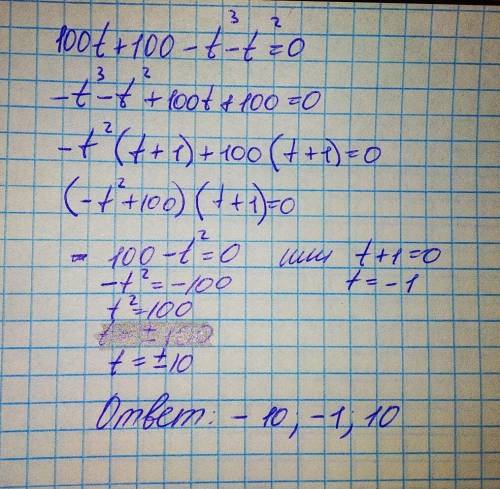 100t + 100 - t³ - t² = 0
-t³ - t² + 100t + 100 = 0
-t² (t + 1) + 100 (t + 1) = 0
(-t² + 100) (t + 1) = 0
- 100 - t² = 0 или t + 1 = 0
-t² = -100 t = -1
t² = 100
t = ± 100
t = ± 10
Ответ: - 10; -1; 10